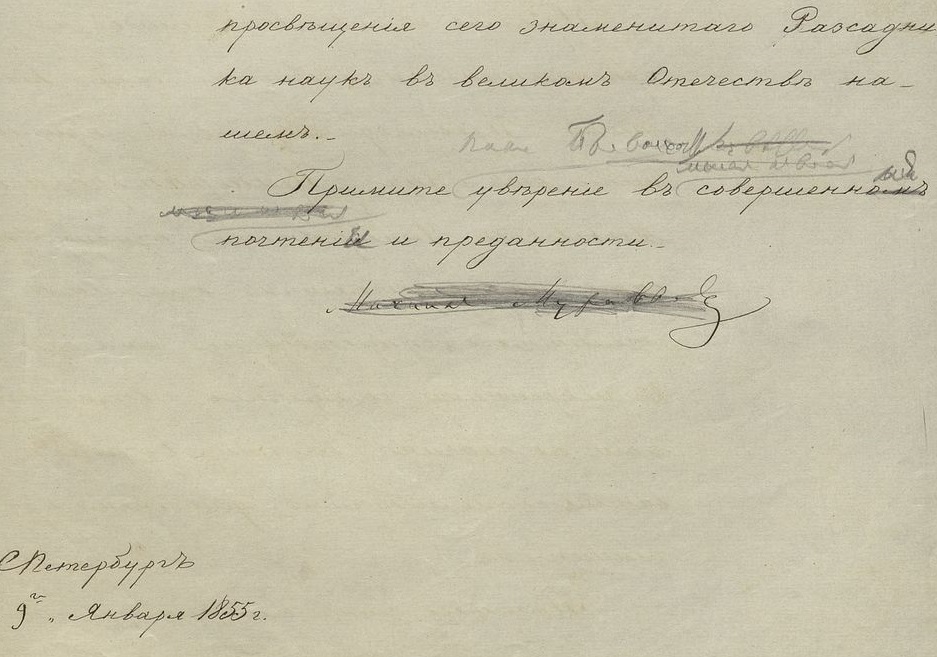 просвѣщенія сего знаменитаго Разсадни
ка наукъ въ великомъ Отечествѣ на-
шемъ.-
Примите увѣреніе въ совершенномъ
почтеніи и преданности.-
Михаил Муравьев
СПетербургъ
9го. Января 1855 г.